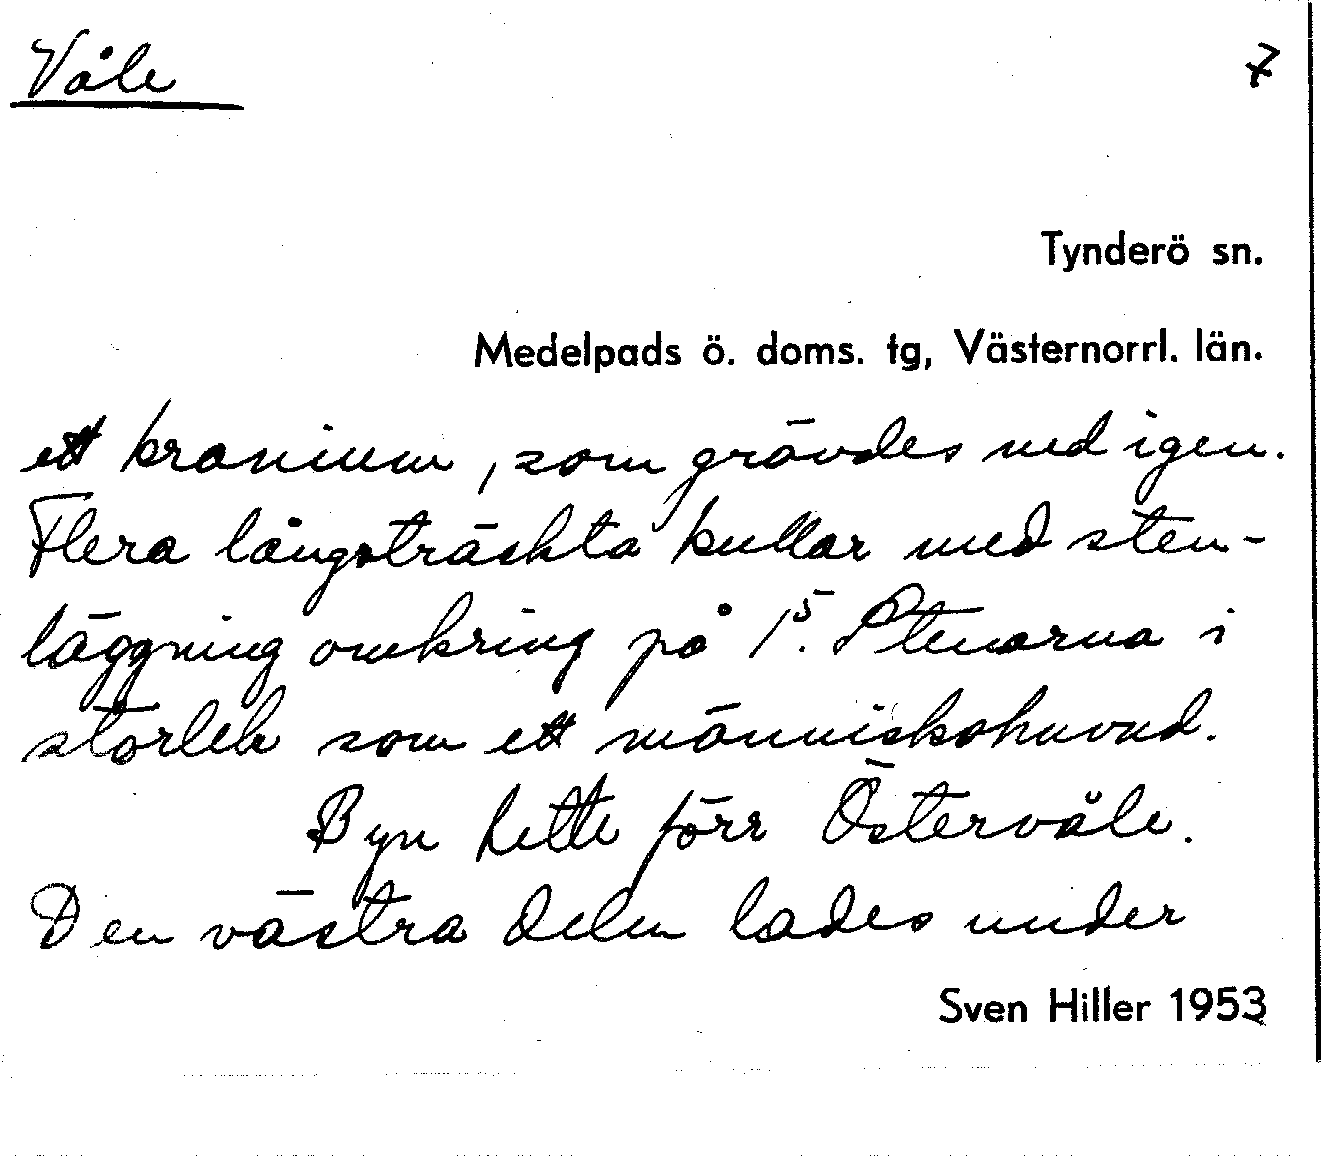 Våle 7
Tynderö sn.
Medelpads ö. doms. tg, Västernorrl. län.
ett kranium, som grävdes ned igen.
Flera långsträckta kullar med sten-
läggning omkring på 15. Stenarna i
storlek som ett människohuvud.
Byn hette förr Östervåle.
Den västra delen lades under
Sven Hiller 1953